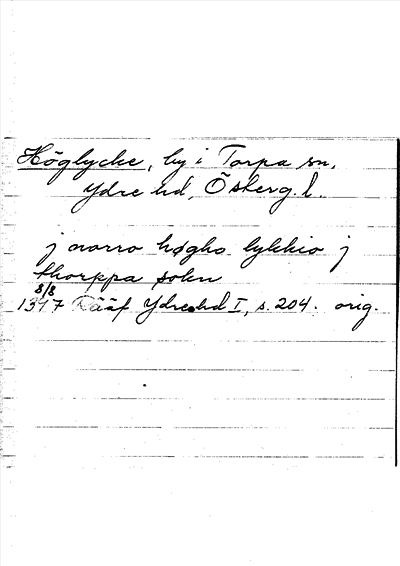 Höglycke, by i Torpa sn,
Ydre hd, Österg. l.
j norro høgho lykkio j
thorppa sokn
8/8
1347 Rääf Ydre hd I, s. 204. orig.